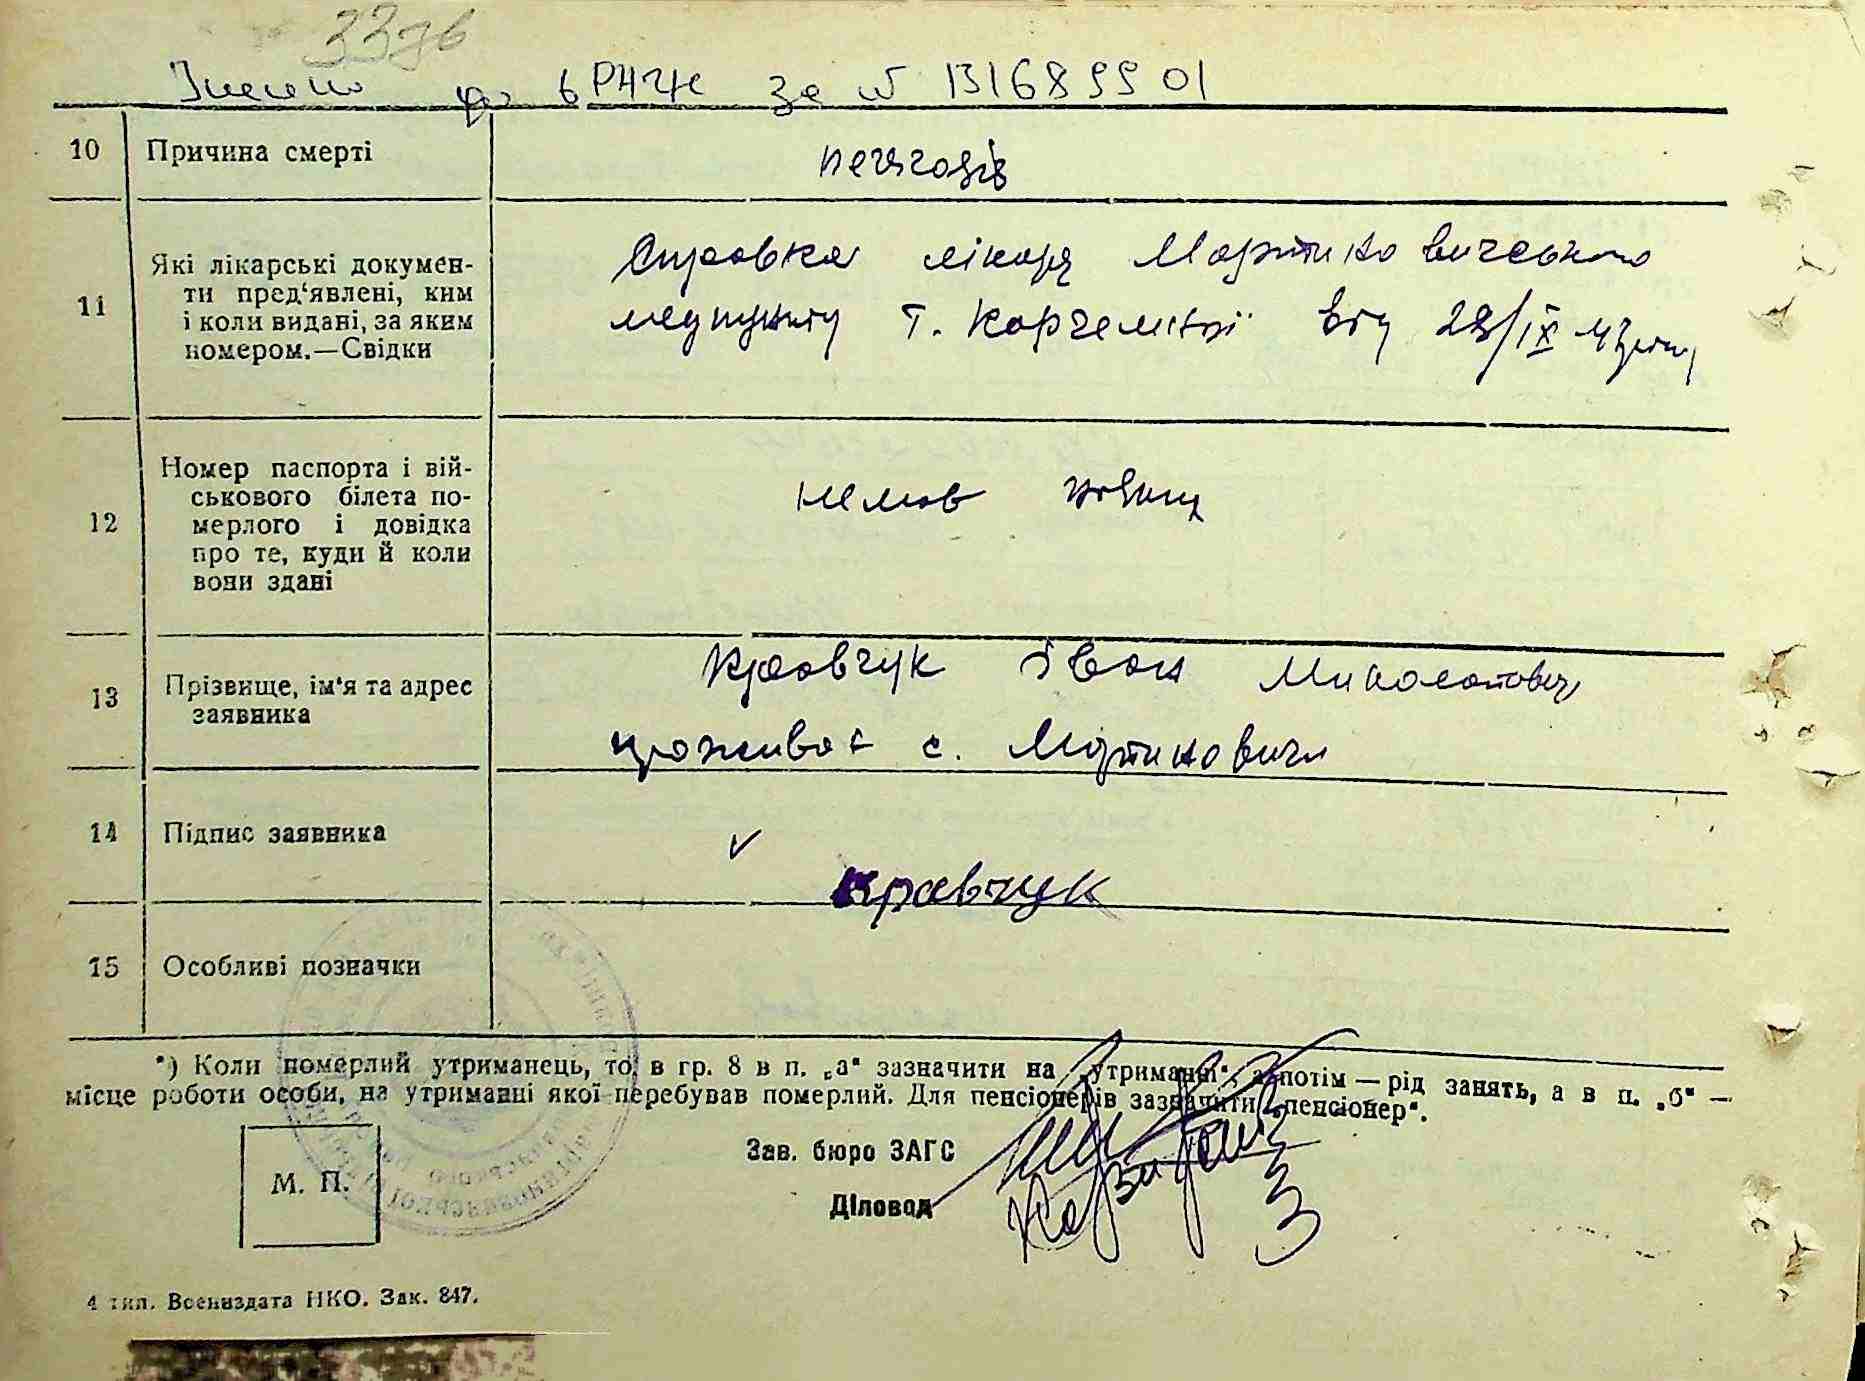 337б
Внесено до ДРАЦС за № 1316899 01
10 Причина смерті
11 Які лікарські докумен-
ти пред'явлені, ким
і коли видані, за яким
номером.—Свідки
Справка лікаря Мартиновичського
медпункту т. Корчемної від 28/ІХ 47 року
12 Номер паспорта і вій-
ськового білета по-
мерлого і довідка
про те, куди й коли
вони здані
немов
13 Прізвище, ім'я та адрес
заявника
Кравчук Іван Миколайович
проживає с. Мартиновичі
14 Підпис заявника
Кравчук
15 Особливі позначки
*) Коли померлий утриманець, то в гр. 8 в п. „а" зазначити на „утриманні", а потім — рід занять, а в п. „б" —
місце роботи особи, на утриманні якої перебував померлий. Для пенсіонерів зазначити „пенсіонер".
Зав. бюро ЗАГС
М. П.
Діловод
4 тип. Воениздата НКО. Зак. 847.